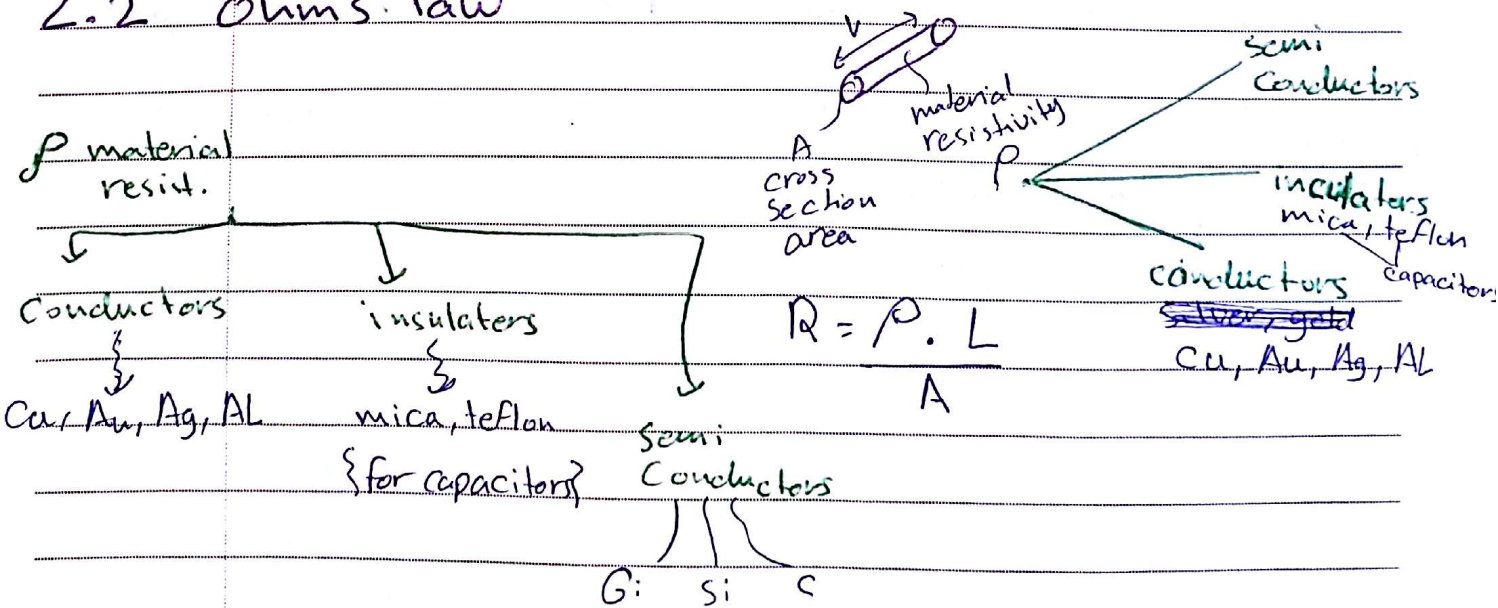 2.2 Ohms. law
ρ material
resist.
Conductors
Cu, Au, Ag, AL
insulaters
mica, teflon
{for capacitors}
Semi
Conductors
Gi Si C
V
A
cross
section
area
material
resistivity
ρ
semi
Conductors
insulaters
mica, teflon
capacitors
conductors
Silver, gold
Cu, Au, Ag, AL
R = ρ. L
A